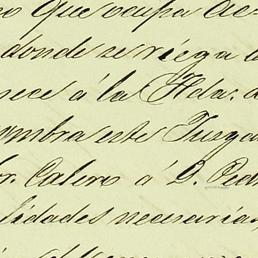 o que ocupa de
donde se riega l
nece á la Hda. d
ombra este Juzga
or. Calero á D. Ped
lidades necesarias